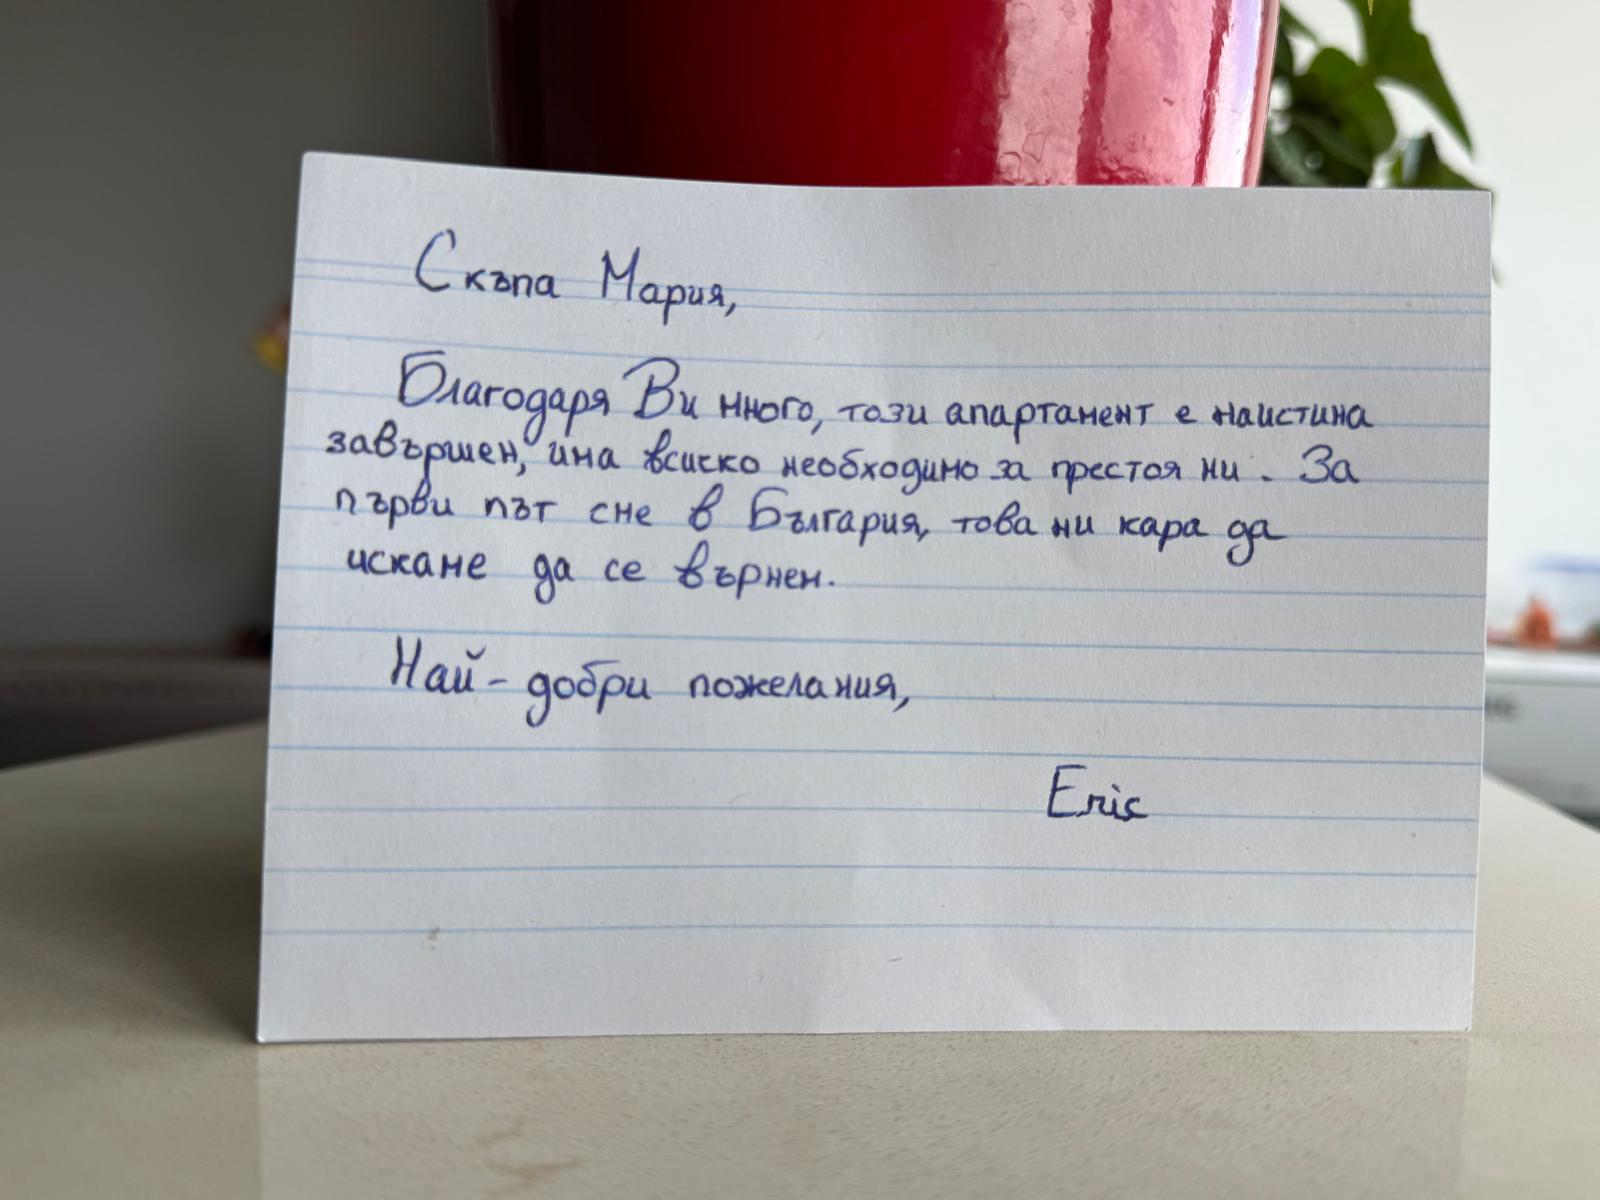 Скъпа Мария,
Благодаря Ви много, този апартамент е наистина
завършен, има всиско необходимо за престоя ни. За
първи път сме в България, това ни кара да
искаме да се върнем.
Най-добри пожелания,
Eric